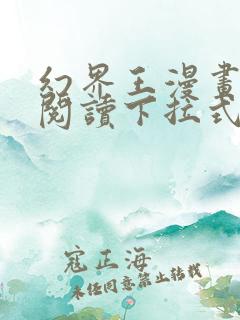 幻界王漫畫
閱讀下拉式
寇正海
未經同意禁止轉載